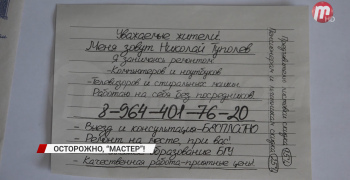 Уважаемые жители!
Меня зовут Николай Туполев
Я занимаюсь ремонтом:
-Компьютеров и ноутбуков
-Телевизоров и стиральных машин.
Работаю на себя без посредников!
8-964-401-76-20
- Выезд и консультация-БЕСПЛАТНО
- Ремонт на месте, при вас!
образование БГУ
- Качественная работа-приятные цены!
Предъявителю листовки скидка
Пенсионерам и
скидка
ОСТОРОЖНО, "МАСТЕР"!